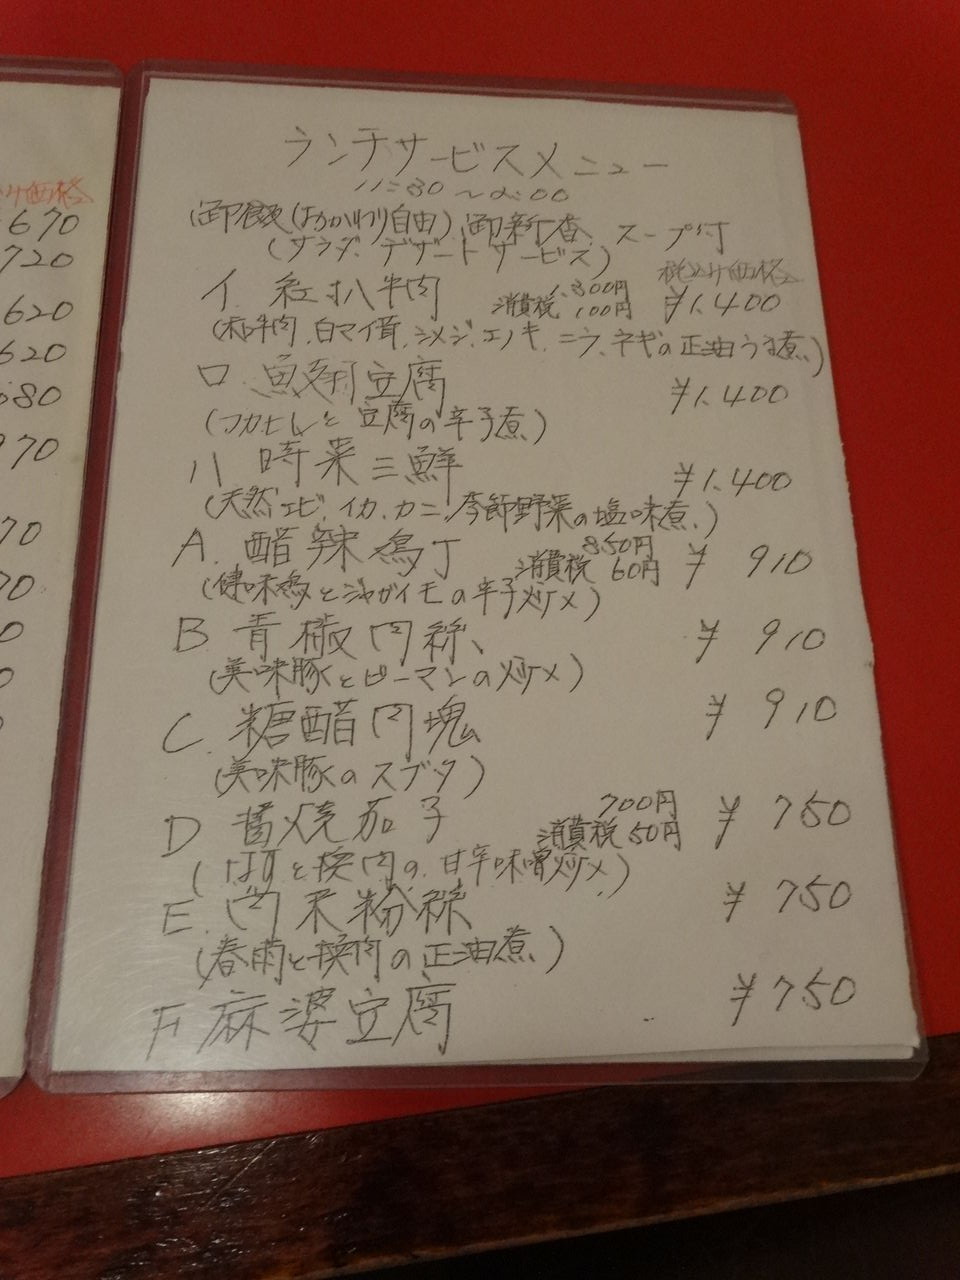 込み価格
670
720
620
620
680
970
70
70
0
0
ランチサービスメニュー
11:30~2:00
御飯(おかわり自由)御新香 スープ付
(サラダ、デザートサービス)
税込み価格
イ. 紅扒牛肉 1,300円 消費税 100円 ¥1,400
(和牛肉、白マイ茸、シメジ、エノキ、ニラ、ネギの正油うま煮)
ロ. 魚翅豆腐 ¥1,400
(フカヒレと豆腐の辛子煮)
ハ 時菜三鮮 ¥1,400
(天然エビ、イカ、カニ、季節野菜の塩味煮)
A. 醋辣鳥丁 850円 消費税 60円 ¥910
(健味鳥とジャガイモの辛子炒メ)
B 青椒肉絲 ¥910
(美味豚とピーマンの炒メ)
C. 糖醋肉塊 ¥910
(美味豚のスブタ)
D 醤焼茄子 700円 消費税 50円 ¥750
(なすと挽肉の甘辛味噌炒メ)
E. 肉末粉絲 ¥750
(春雨と挽肉の正油煮)
F 麻婆豆腐 ¥750